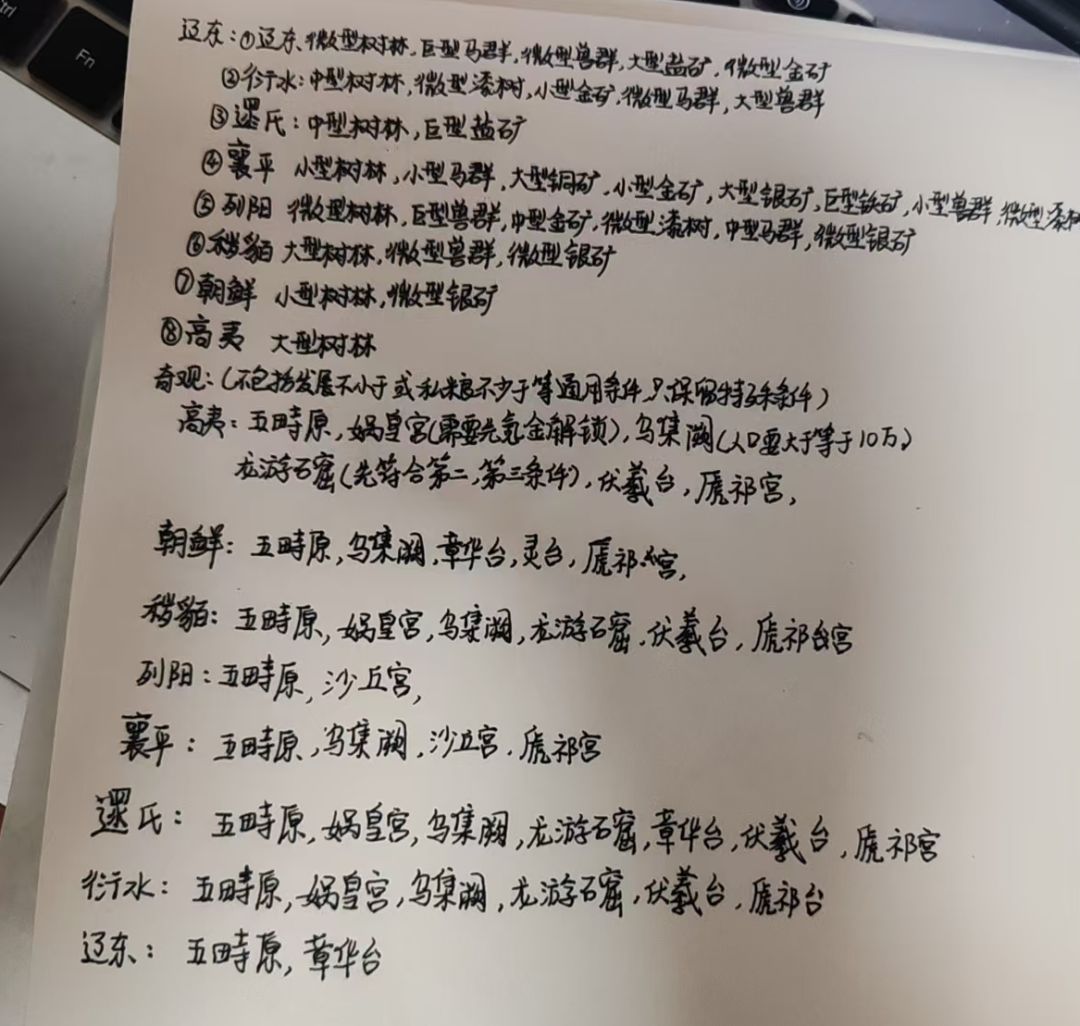 Fn
辽东:①辽东,微型树林,巨型马群,微型兽群,大型盐矿,微型金矿
②衍水:中型树林,微型漆树,小型金矿,微型马群,大型兽群
③遝氏:中型树林,巨型盐矿
④襄平 小型树林,小型马群,大型铜矿,小型金矿,大型银矿,巨型铁矿,小型兽群,微型漆树
⑤列阳 微型树林,巨型兽群,中型金矿,微型漆树,中型马群,微型银矿
⑥秽貊 大型树林,微型兽群,微型银矿
⑦朝鲜 小型树林,微型银矿
⑧高夷 大型树林
奇观:(不包括发展不小于或私粮不少于等通用条件,只保留特殊条件)
高夷:五畤原,娲皇宫(需要元氪金解锁),乌集阙(人口要大于等于10万)
龙游石窟(先符合第二,第三条件),伏羲台,虒祁宫,
朝鲜:五畤原,乌集阙,章华台,灵台,虒祁宫,
秽貊:五畤原,娲皇宫,乌集阙,龙游石窟,伏羲台,虒祁宫
列阳:五畤原,沙丘宫,
襄平:五畤原,乌集阙,沙丘宫,虒祁宫
遝氏:五畤原,娲皇宫,乌集阙,龙游石窟,章华台,伏羲台,虒祁宫
衍水:五畤原,娲皇宫,乌集阙,龙游石窟,伏羲台,虒祁台
辽东:五畤原,章华台